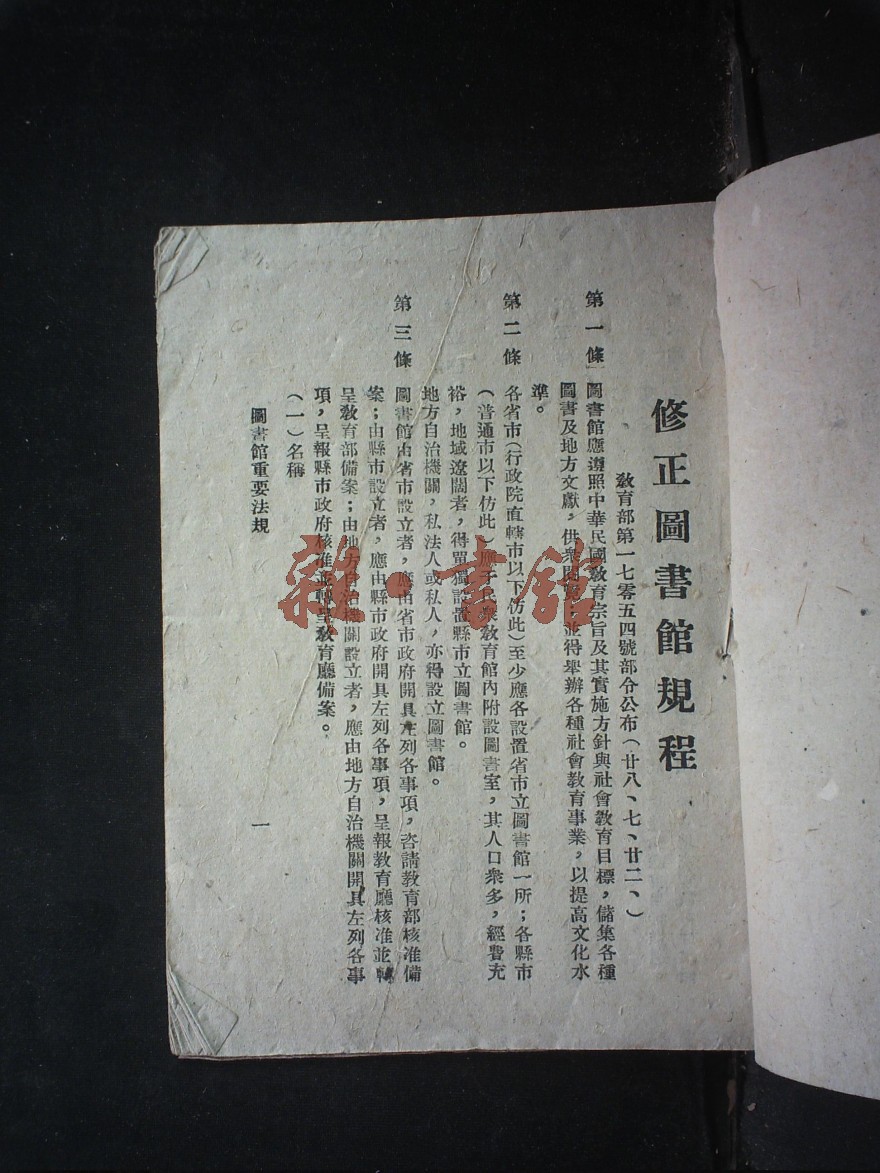 修正圖書館規程
敎育部第一七零五四號部令公布(廿八、七、廿二、)
第一條 圖書館應遵照中華民國敎育宗旨及其實施方針與社會敎育目標，儲集各種
圖書及地方文獻，供衆閱覽，並得舉辦各種社會敎育事業，以提高文化水
準。
第二條 各省市(行政院直轄市以下仿此)至少應各設置省市立圖書館一所；各縣市
(普通市以下仿此)應于民衆敎育館內附設圖書室，其人口衆多，經費充
裕，地域遼闊者，得單獨設置縣市立圖書館。
地方自治機關，私法人或私人，亦得設立圖書館。
第三條 圖書館由省市設立者，應由省市政府開具左列各事項，咨請敎育部核准備
案；由縣市設立者，應由縣市政府開具左列各事項，呈報敎育廳核准並轉
呈敎育部備案；由地方自治機關設立者，應由地方自治機關開具左列各事
項，呈報縣市政府核准並轉呈敎育廳備案。
(一)名稱
圖書館重要法規
一
雜·書館